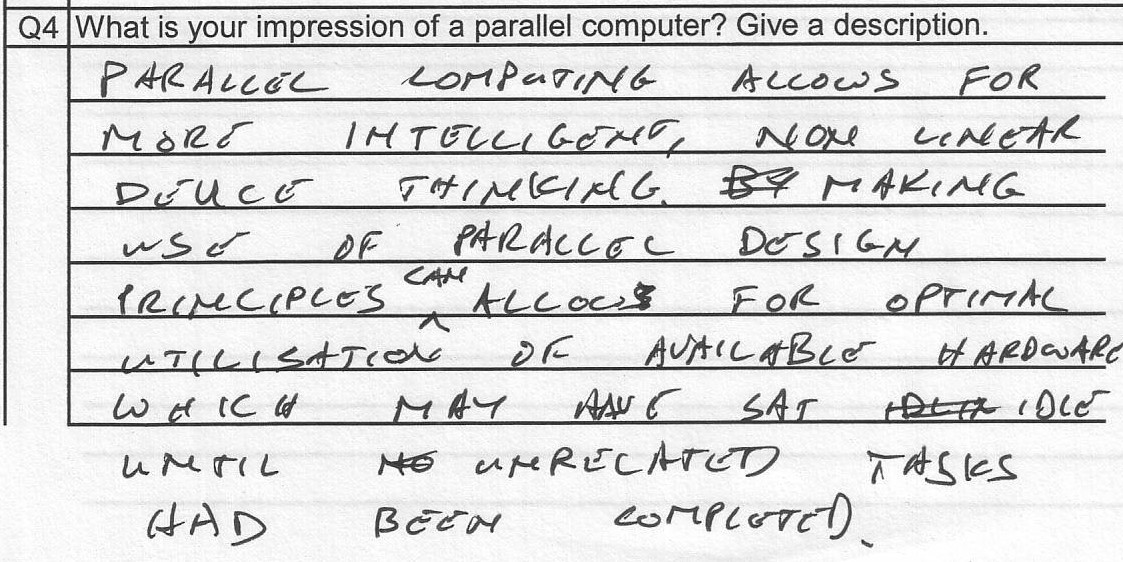 Q4 What is your impression of a parallel computer? Give a description.
PARALLEL COMPUTING ALLOWS FOR
MORE INTELLIGENT, NON LINEAR
DEVICE THINKING. BY MAKING
USE OF PARALLEL DESIGN
PRINCIPLES CAN ALLOW FOR OPTIMAL
UTILISATION OF AVAILABLE HARDWARE
WHICH MAY HAVE SAT IDLE
UNTIL UNRELATED TASKS
HAD BEEN COMPLETED.